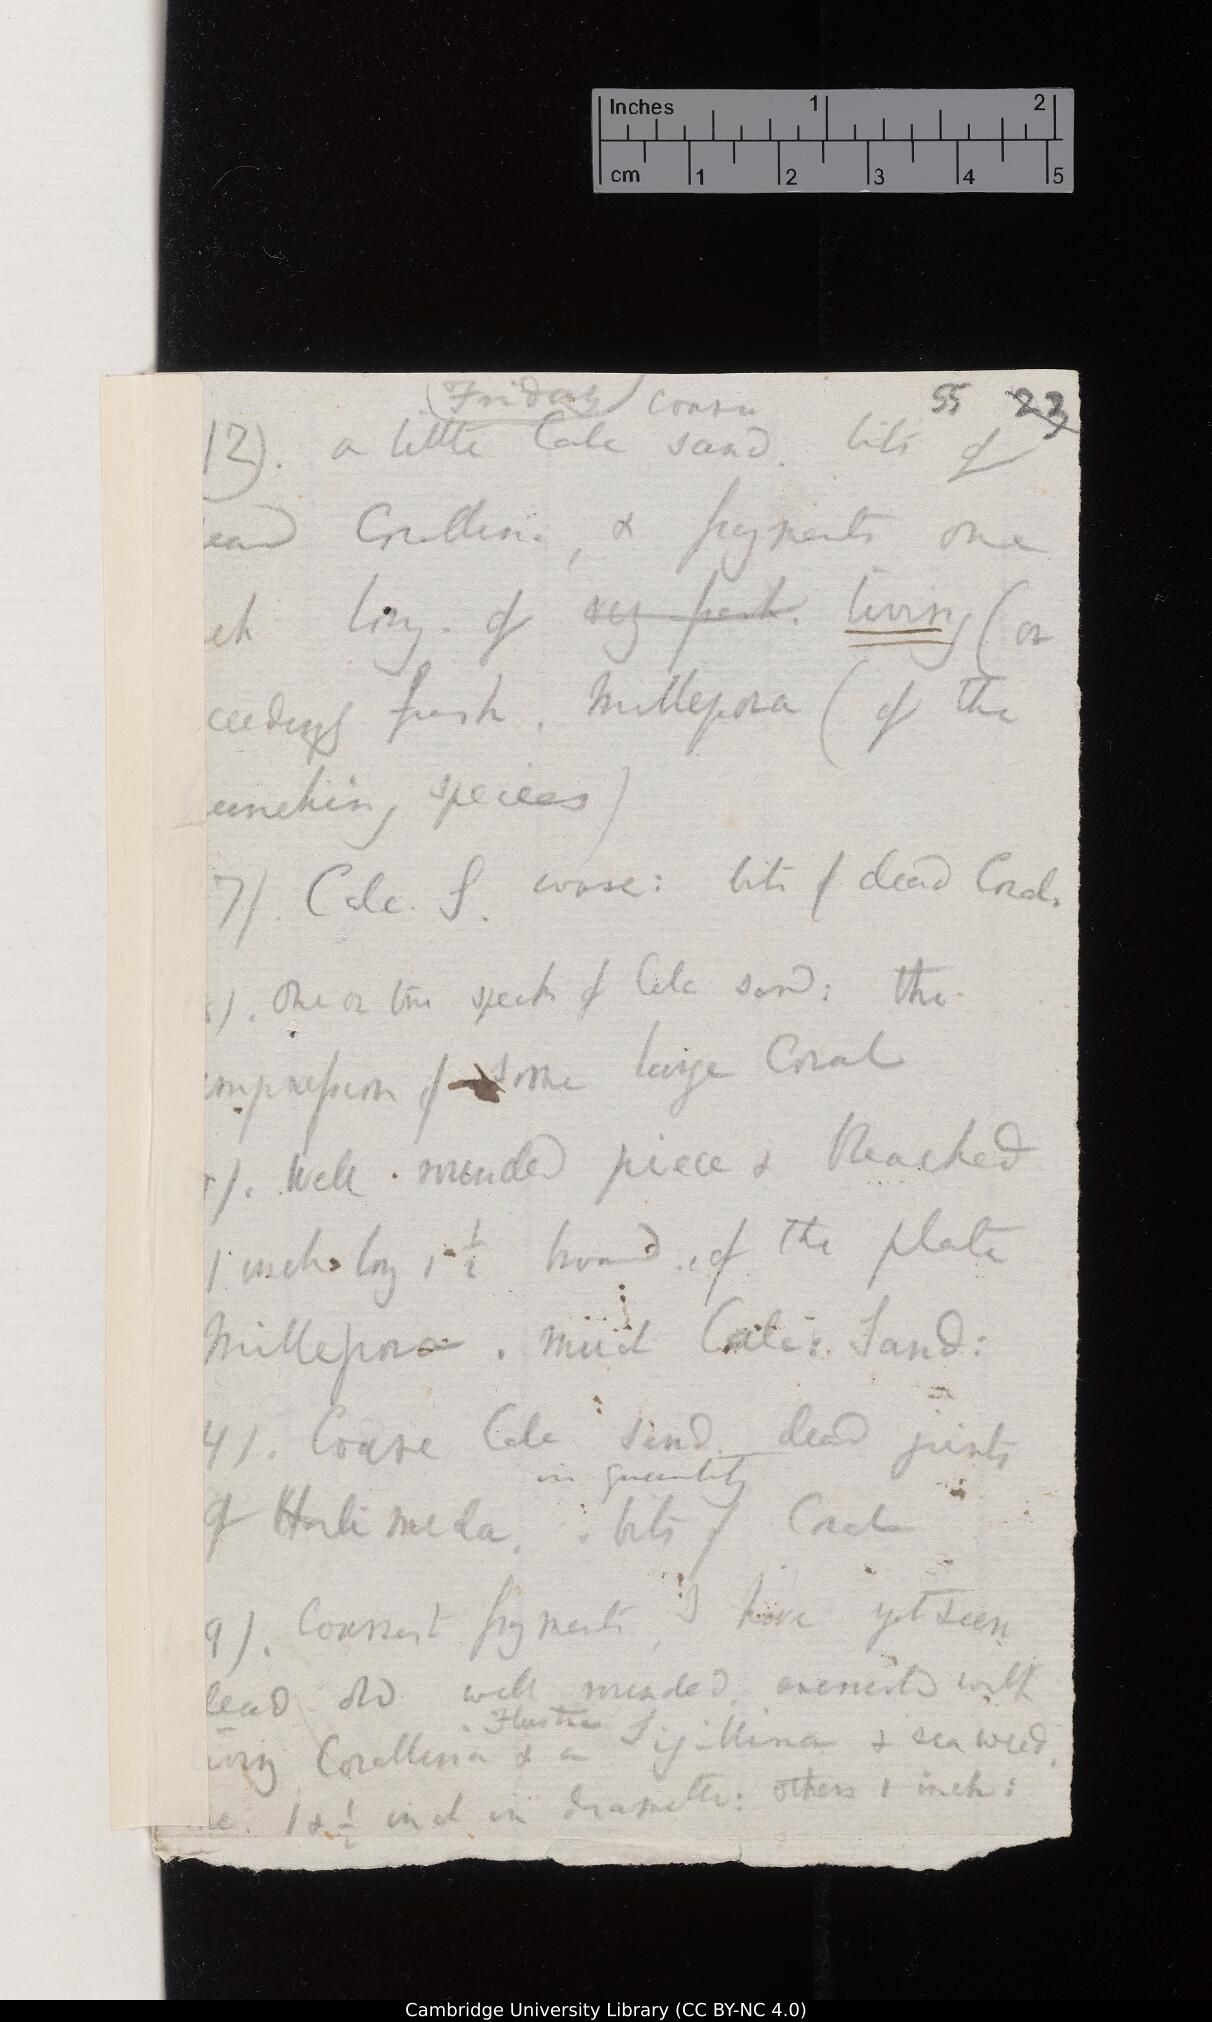 Inches 1 2
cm 1 2 3 4 5
(Friday) coarse 55 23
12). a little Calc sand. bits of
ead Corallina, & fragments one
ch long. of very fresh. living (or
ceedingly fresh. Millepora (of the
ranching species)
7). Calc. S. coarse: bits of dead Coral.
). One or two specks of Calc sand: the
impression of some large Coral
). Well rounded piece & bleached
1 inch long 1 1/2 broad. of the plate
Millepora. much Calc: Sand:
4). Coarse Calc sand. dead joints
in quantity
of Halimeda. bits of Coral
9). Coarsest fragments, I have yet seen
dead old well rounded. encrusted with
Flustra
iving Corallina & a Sigillina & sea weed.
1 & 1/2 inch in diameter: others 1 inch:
Cambridge University Library (CC BY-NC 4.0)